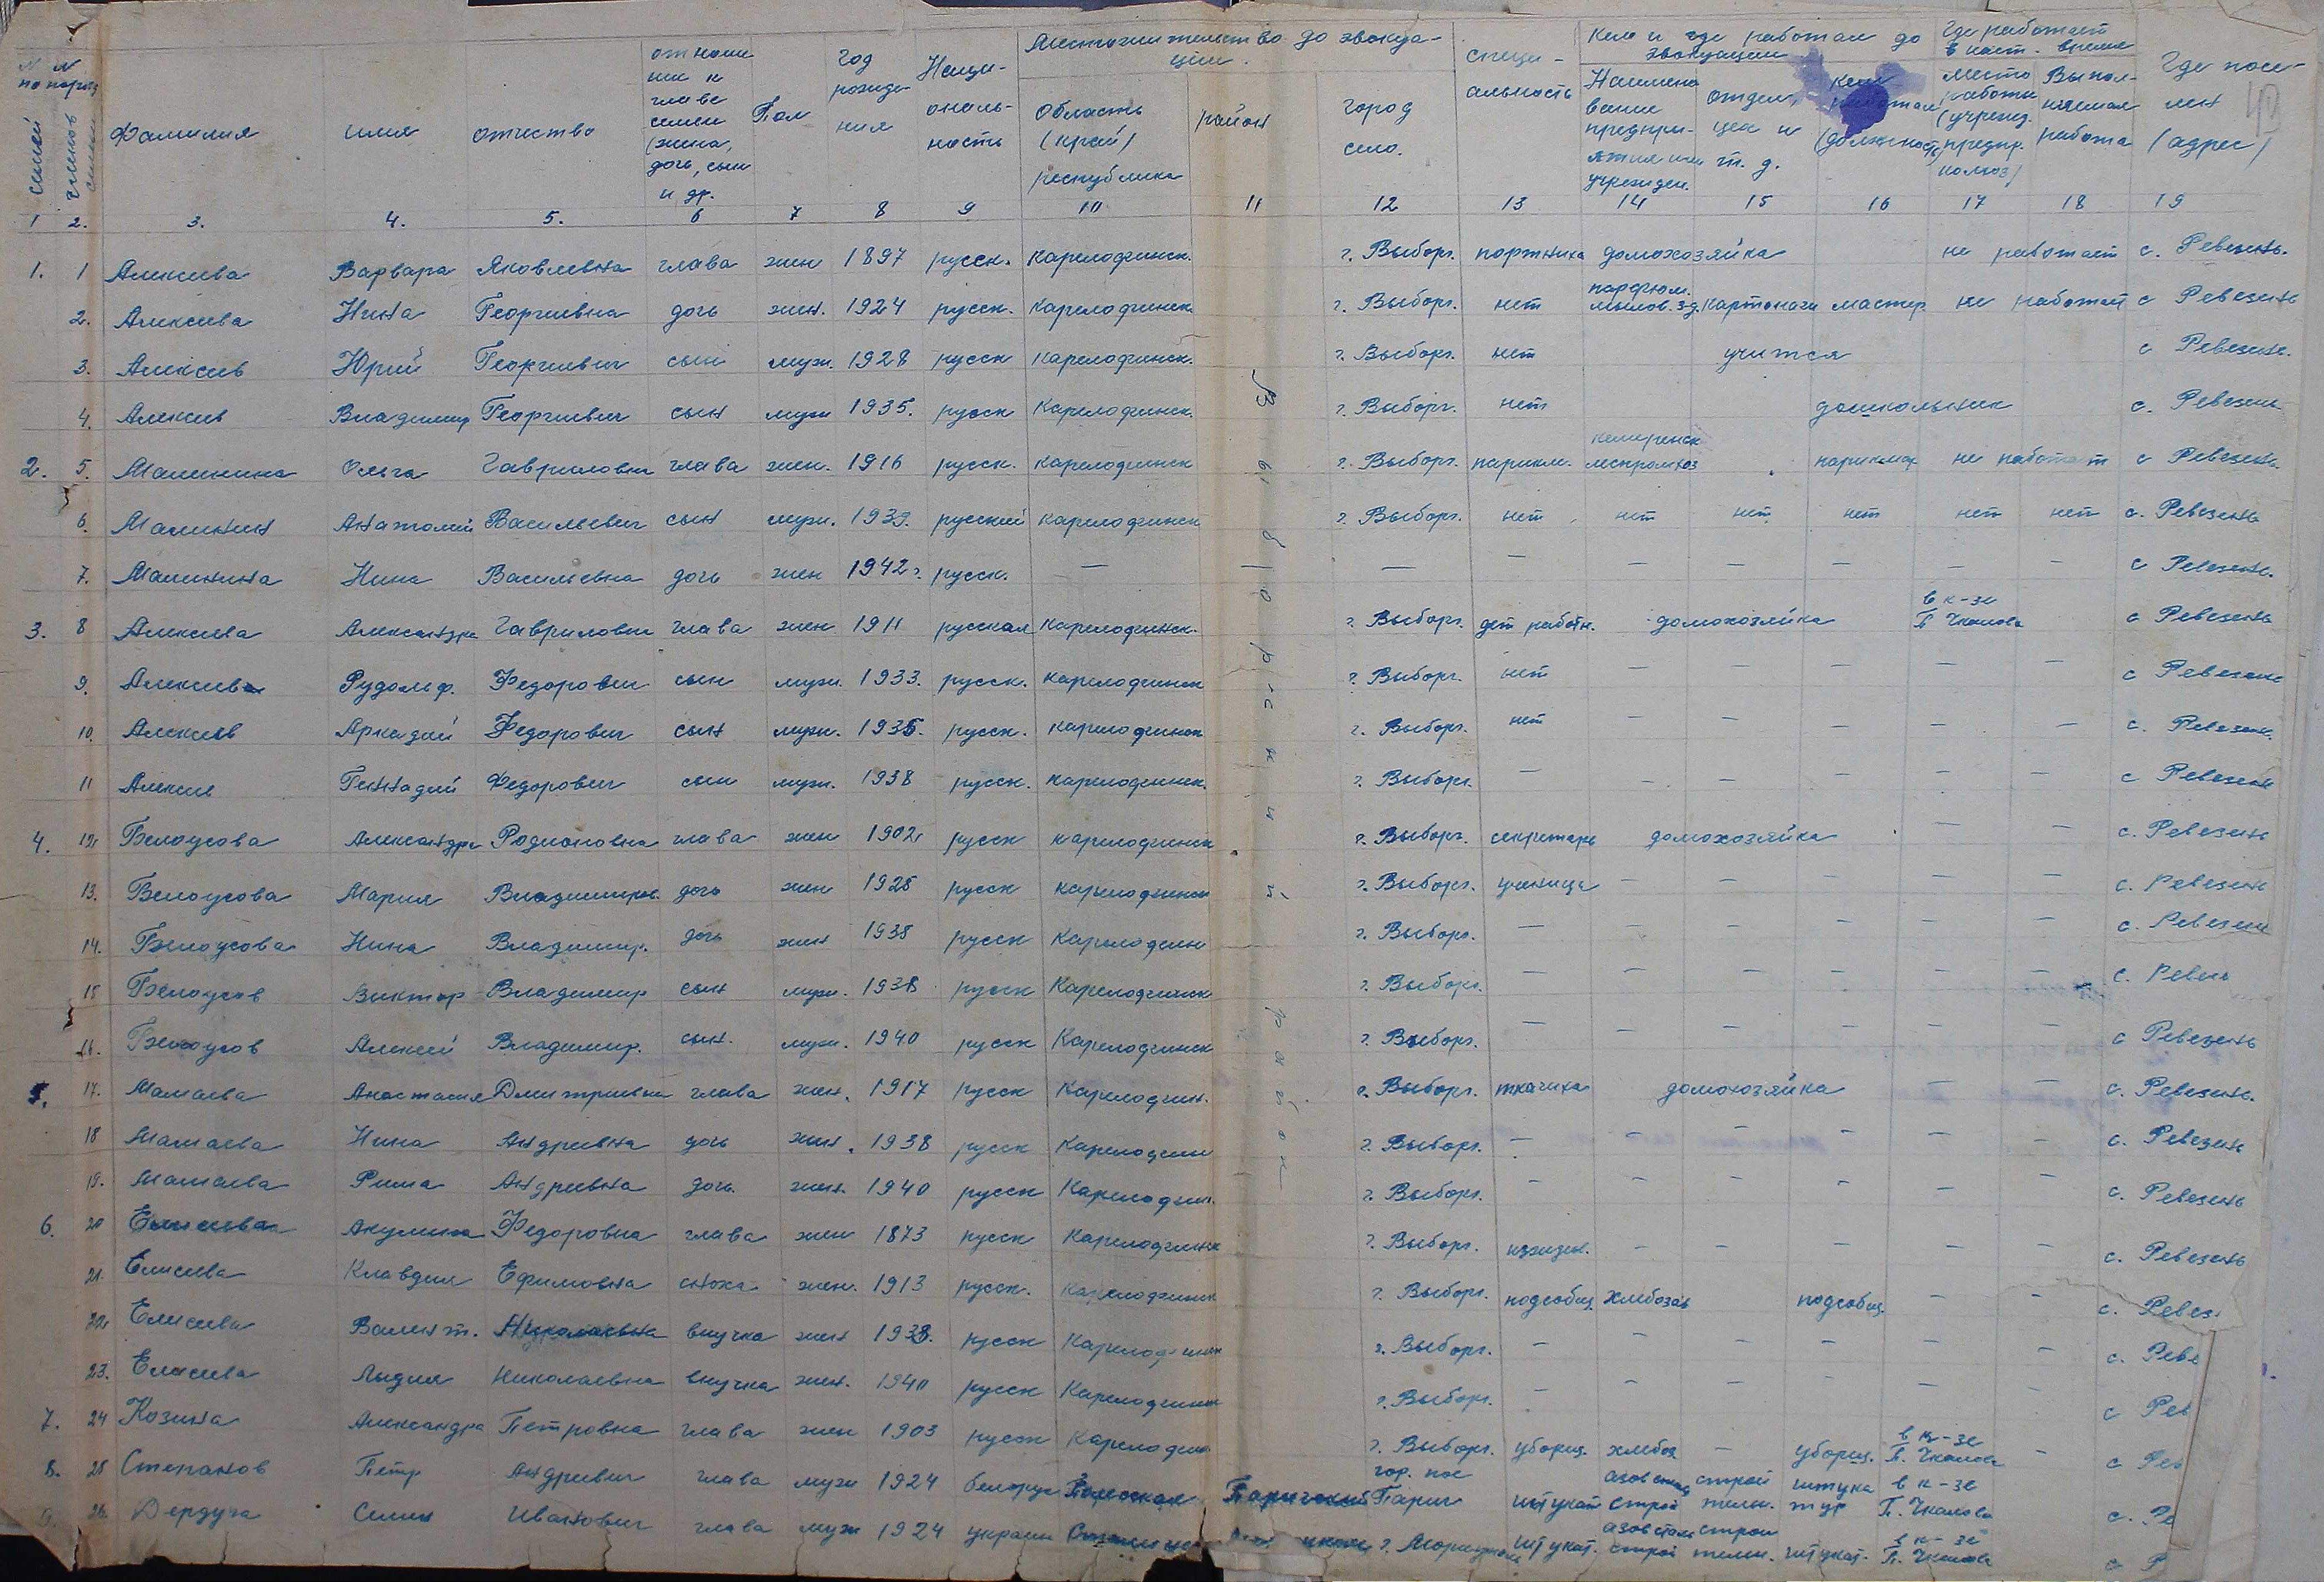 № № по поряд.
семей
членов семьи
Фамилия
имя
отчество
отноше
ние к
главе
семьи
(жена,
дочь, сын
и др.
Пол
год
рожде-
ния
Наци-
ональ-
ность
Местожительство до эвакуа-
ции.
Область
(край)
республика
район
город
село.
специ-
альность
Кем и где работал до
эвакуации
Наимено
вание
предпри-
ятия или
учрежден.
отдел,
цех и
т. д.
Кем
работал
(должность)
Где работает
в наст. время
место
работы
(учрежд.
предпр.
колхоз)
Выпол-
няемая
работа
Где посе-
лен
(адрес)
1 2. 3. 4. 5. 6 7 8 9 10 11 12 13 14 15 16 17 18 19
Выборгский район
1. 1 Алексеева Варвара Яковлевна глава жен 1897 русск. Карелофинск. г. Выборг. портниха домохозяйка не работает с. Ревезень.
2. Алексеева Нина Георгиевна дочь жен. 1924 русск. Карелофинск. г. Выборг. нет парфюм. мылов. з-д. картонажн мастер. не работает с Ревезень
3. Алексеев Юрий Георгиевич сын муж. 1928 русск Карелофинск. г. Выборг. нет учится с Ревезень.
4. Алексеев Владимир Георгиевич сын муж 1935. русск Карелофинск. г. Выборг. нет дошкольник с. Ревезень
2. 5. Малинина Ольга Гавриловна глава жен. 1916 русск. Карелофинск г. Выборг. парикм. леспромхоз парикмах не работает с Ревезень.
6. Малинин Анатолий Васильевич сын муж. 1939. русский Карелофинск г. Выборг. нет нет нет нет нет нет с. Ревезень
7. Малинина Нина Васильевна дочь жен 1942 г. русск. — — — — — — — — с Ревезень.
3. 8 Алексеева Александра Гавриловна глава жен 1911 русская Карелофинск. г. Выборг. дет работн. домохозяйка в к-зе П Чкалова с Ревезень
9. Алексеев Рудольф. Федорович сын муж. 1933. русск. Карелофинск г. Выборг. нет — — — — — с Ревезень
10. Алексеев Аркадий Федорович сын муж. 1935. русск. Карелофинск г. Выборг. нет — — — — — с. Ревезень.
11 Алексеев Геннадий Федорович сын муж. 1938 русск. Карелофинск. г. Выборг. — — — — — — с Ревезень
4. 12 Белоусова Александра Родионовна глава жен 1902 русск Карелофинск г. Выборг. секретарь домохозяйка — — с. Ревезень
13. Белоусова Мария Владимиров. дочь жен 1925 русск Карелофинск г. Выборг. ученица — — — — — с. Ревезень
14. Белоусова Нина Владимир. дочь жен 1938 русск Карелофин г. Выборг. — — — — — — с. Ревезень
15 Белоусов Виктор Владимир сын муж. 1938 русск Карелофинск г. Выборг. — — — — — — с. Ревезь
16. Белоусов Алексей Владимир. сын. муж. 1940 русск Карелофинск г. Выборг. — — — — — — с Ревезень
5. 17. Мамаева Анастасия Дмитриевна глава жен. 1917 русск Карелофин. г. Выборг. ткачиха домохозяйка — — с. Ревезень.
18 Мамаева Нина Андреевна дочь жен. 1938 русск Карелофин г. Выборг. — — — — — — с. Ревезень
19. Мамаева Рима Андреевна дочь. жен. 1940 русск Карелофин. г. Выборг. — — — — — — с. Ревезень
6. 20 Елисеева Акулина Федоровна глава жен 1873 русск Карелофинск г. Выборг. иждив. — — — — — с. Ревезень
21. Елисеева Клавдия Ефимовна сноха жен. 1913 русск. Карелофинск г. Выборг. подсобн. хлебозав подсобн. — — с. Ревез
22 Елисеева Валент. Николаевна внучка жен 1938. русск Карелофинск г. Выборг. — — — — — — с. Реве
23. Елисеева Лидия Николаевна внучка жен. 1940 русск Карелофинск г. Выборг. — — — — — — с Рев
7. 24 Козина Александра Петровна глава жен 1903 русск Карелофин г. Выборг. уборщ. хлебоз — уборщ. в к-зе П. Чкалова — с Рев
8. 25 Степанов Петр Андреевич глава муж 1924 белорус Полесская Паричский гор. пос Парич штукат азовсталь строй строй телен. штука тур в к-зе П. Чкалова с. Ре
9. 26. Дердуга Семен Иванович глава муж 1924 украин г. Мариуполь штукат. азовсталь строй строи телен. штукат. в к-зе П. Чкалова с Р